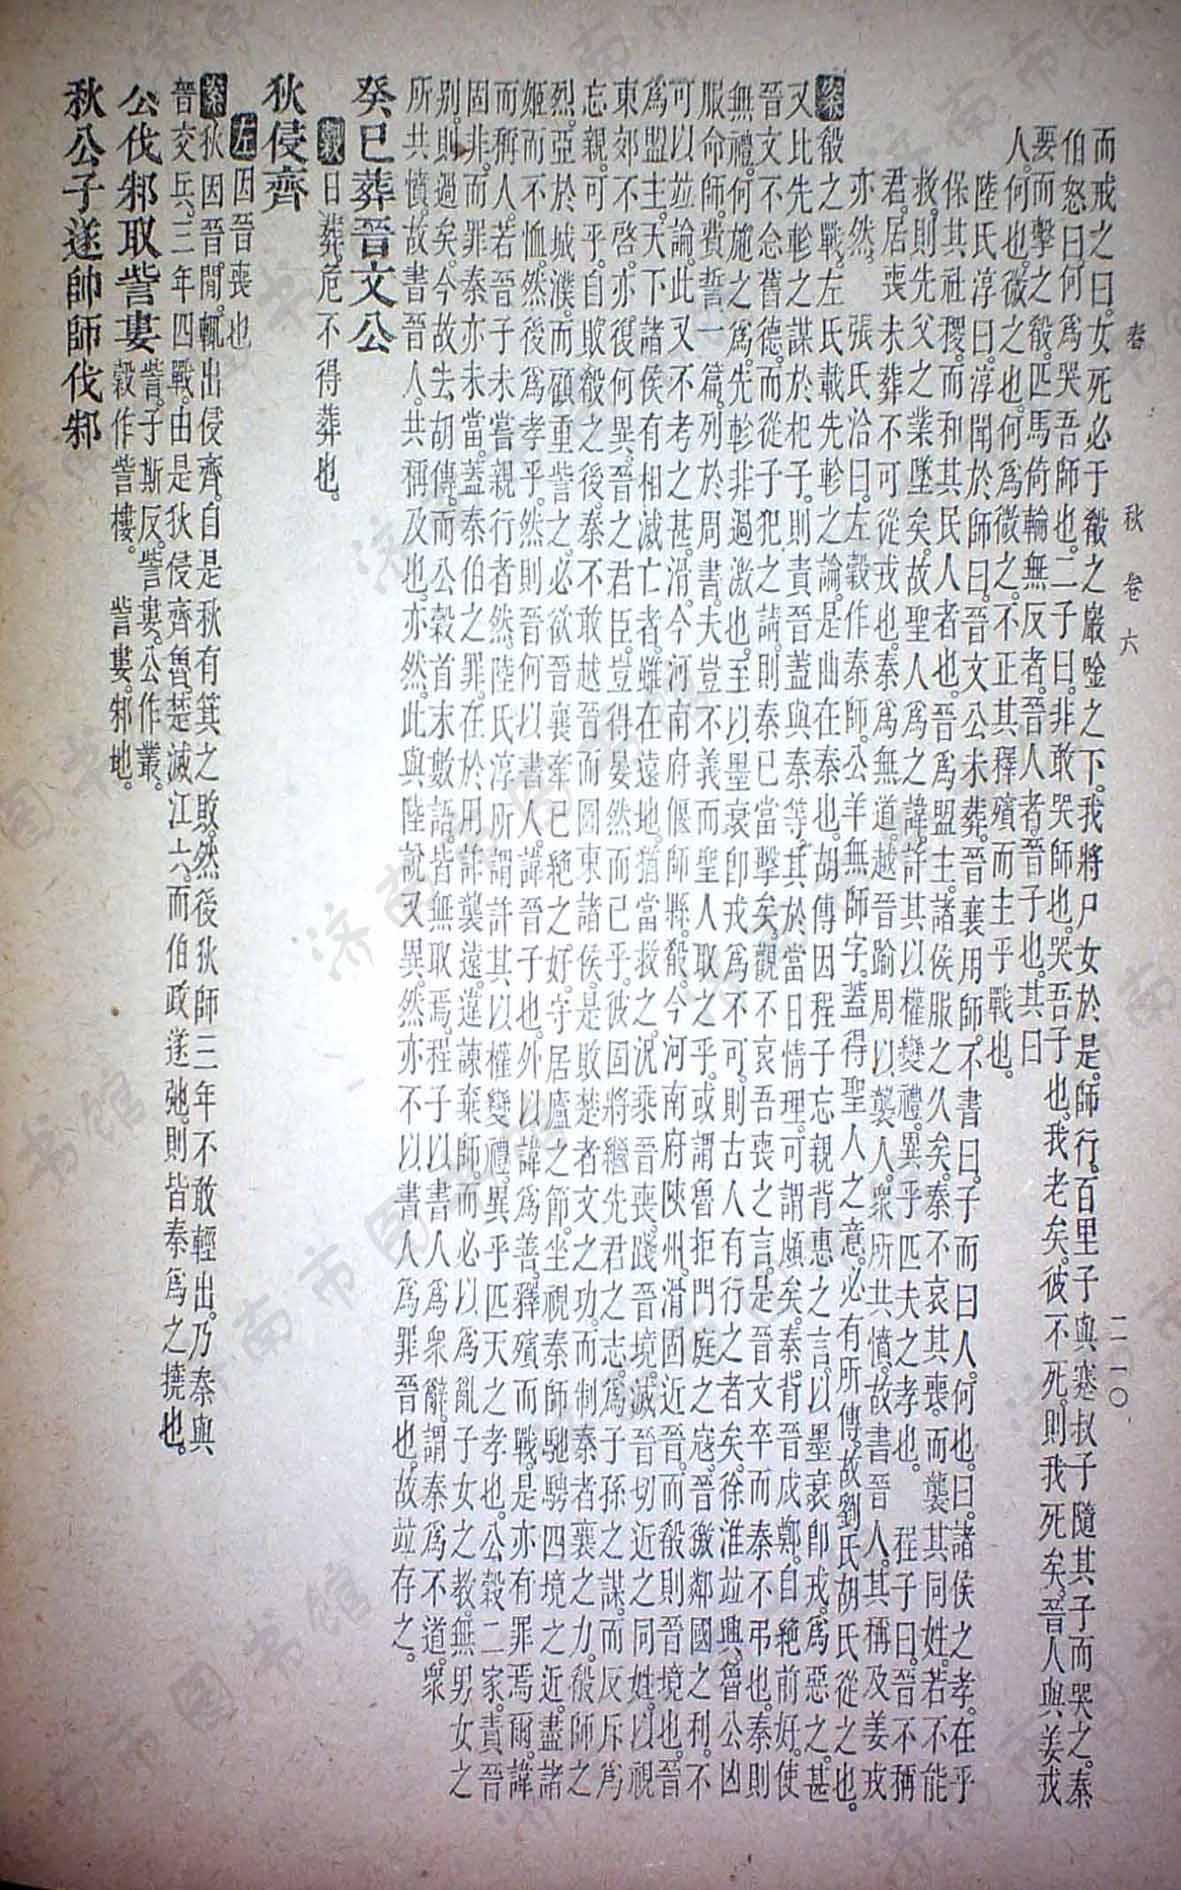 春　秋　卷　六　二一〇
而戒之曰。女死必于殽之巖唫之下。我將尸女於是。師行。百里子與蹇叔子隨其子而哭之。秦
伯怒曰。何爲哭吾師也。二子曰。非敢哭師也。哭吾子也。我老矣。彼不死。則我死矣。晉人與姜戎
要而擊之殽。匹馬倚輪無反者。晉人者。晉子也。其曰
人。何也。微之也。何爲微之。不正其釋殯而主乎戰也。
陸氏淳曰。淳聞於師曰。晉文公未葬。晉襄用師。不書曰子而曰人。何也。曰。諸侯之孝。在乎
保其社稷。而和其民人者也。晉爲盟主。諸侯服之久矣。秦不哀其喪。而襲其同姓。若不能
救。則先父之業墜矣。故聖人爲之諱。許其以權變禮。異乎匹夫之孝也。　程子曰。晉不稱
君。居喪未葬不可從戎也。秦爲無道。越晉踰周以襲人。衆所共憤。故書晉人。其稱及姜戎
亦然。　張氏洽曰。左穀作秦師。公羊無師字。蓋得聖人之意。必有所傳。故劉氏胡氏從之也。
案殽之戰。左氏載先軫之論。是曲在秦也。胡傳因程子忘親背惠之言。以墨衰卽戎。爲惡之甚。
又比先軫之謀於杞子。則責晉蓋與秦等。其於當日情理。可謂頗矣。秦背晉戍鄭。自絶前好。使
晉文不念舊德。而從子犯之請。則秦已當擊矣。觀不哀吾喪之言。是晉文卒而秦不弔也。秦則
無禮。何施之爲。先軫非過激也。至以墨衰卽戎爲不可。則古人有行之者矣。徐淮竝興。魯公凶
服命師。費誓一篇。列於周書。夫豈不義而聖人取之乎。或謂魯拒門庭之寇。晉徼鄰國之利。不
可以竝論。此又不考之甚。滑。今河南府偃師縣。殽。今河南府陝州。滑固近晉。而殽則晉境也。晉
爲盟主。天下諸侯有相滅亡者。雖在遠地。猶當救之。況乘晉喪。踐晉境。滅晉切近之同姓。以視
東郊不啓。亦復何異。晉之君臣。豈得晏然而已乎。彼固將繼先君之志。爲子孫之謀。而反斥爲
忘親。可乎。自敗殽之後。秦不敢越晉而圖東諸侯。是敗楚者文之功。而制秦者襄之力。殽師之
烈。亞於城濮。而顧重訾之。必欲晉襄牽已絶之好。守居廬之節。坐視秦師馳騁四境之近。盡諸
姬而不恤。然後爲孝乎。然則晉何以書人。諱晉子也。外以諱爲善。釋殯而戰。是亦有罪焉爾。諱
而稱人。若晉子未嘗親行者然。陸氏淳所謂許其以權變禮。異乎匹夫之孝也。公穀二家。責晉
固非。而罪秦亦未當。蓋秦伯之罪。在於用詐襲遠。違諫棄師。而必以爲亂子女之教。無男女之
別。則過矣。今故去胡傳。而公穀首末數語。皆無取焉。程子以書人爲衆辭。謂秦爲不道。衆
所共憤。故書晉人。共稱及也。亦然。此與陸說又異。然亦不以書人爲罪晉也。故竝存之。
癸巳葬晉文公
穀日葬。危不得葬也。
狄侵齊
左因晉喪也
案狄因晉閒。輒出侵齊。自是狄有箕之敗。然後狄師三年不敢輕出。乃秦與
晉交兵。三年四戰。由是狄侵齊魯。楚滅江六。而伯政遂弛。則皆秦爲之撓也。
公伐邾取訾婁訾。子斯反。訾婁。公作叢。
穀作訾樓。　訾婁。邾地。
秋公子遂帥師伐邾